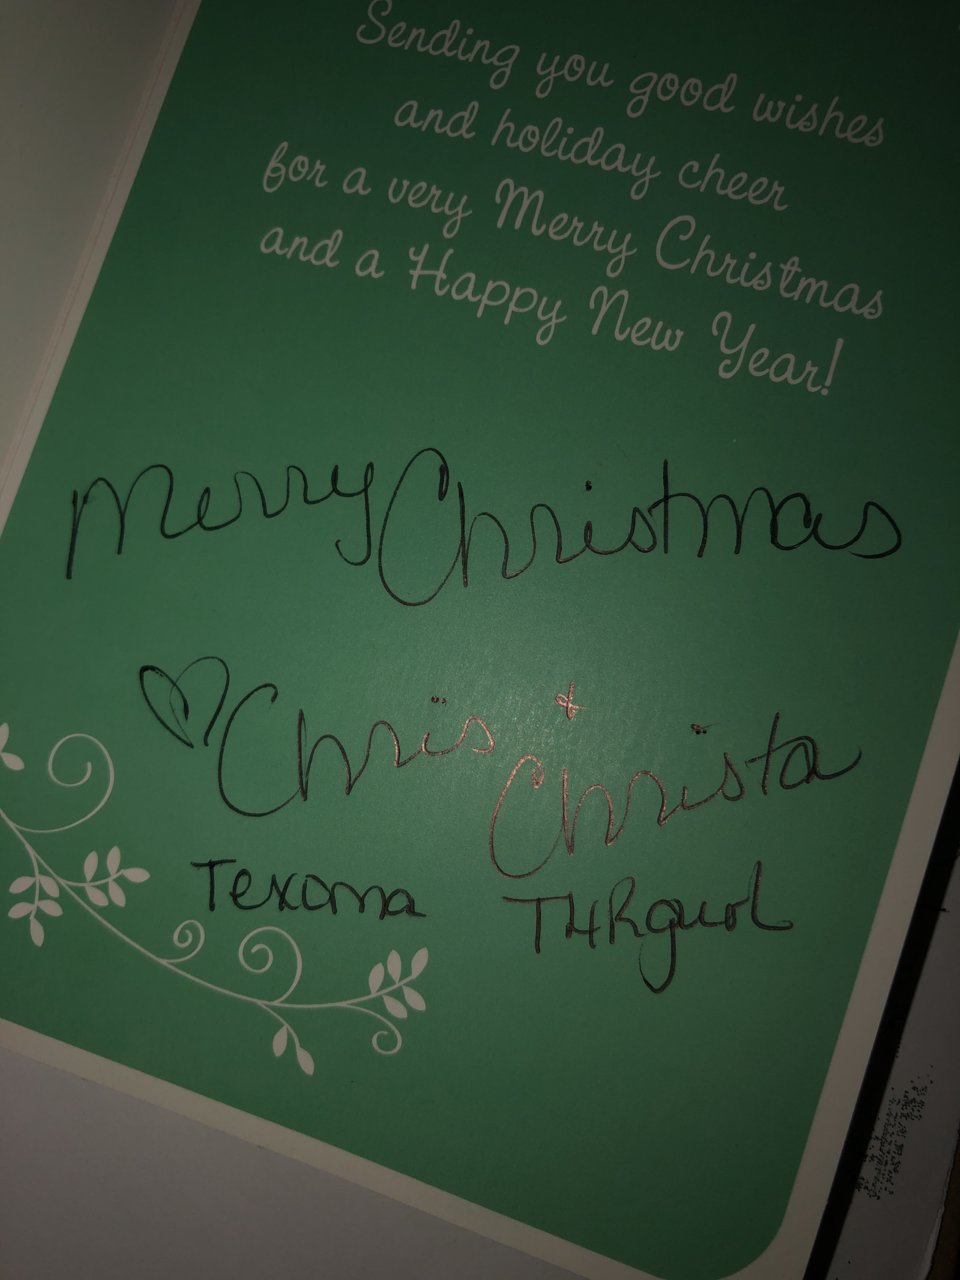 Sending you good wishes
and holiday cheer
for a very Merry Christmas
and a Happy New Year!
Merry Christmas
Chris & Christa
Texoma THRgurl